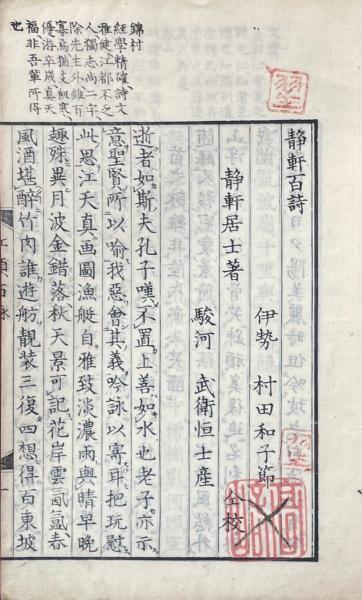 錦村
經學精確詩文
雅健江都不乏
人獨志尚二字
除先生外錐百
寡焉猶支飢寒
優游卒歲真天
福非吾輩所得
也
靜軒百詩
靜軒居士著
伊勢 村田和子節
駿河 武衛恒士産 仝校
逝者如斯夫孔子嘆不置上善如水也老子亦示
意聖賢所以喻我惡會其義吟詠以寓耳把玩慰
此思江天真画圖漁艇自雅致淡濃雨與晴早晚
趣殊異月波金錯落秋天景可記花岸雲氤氳春
風酒堪醉竹肉誰遊舫靚装三復四想得百東坡